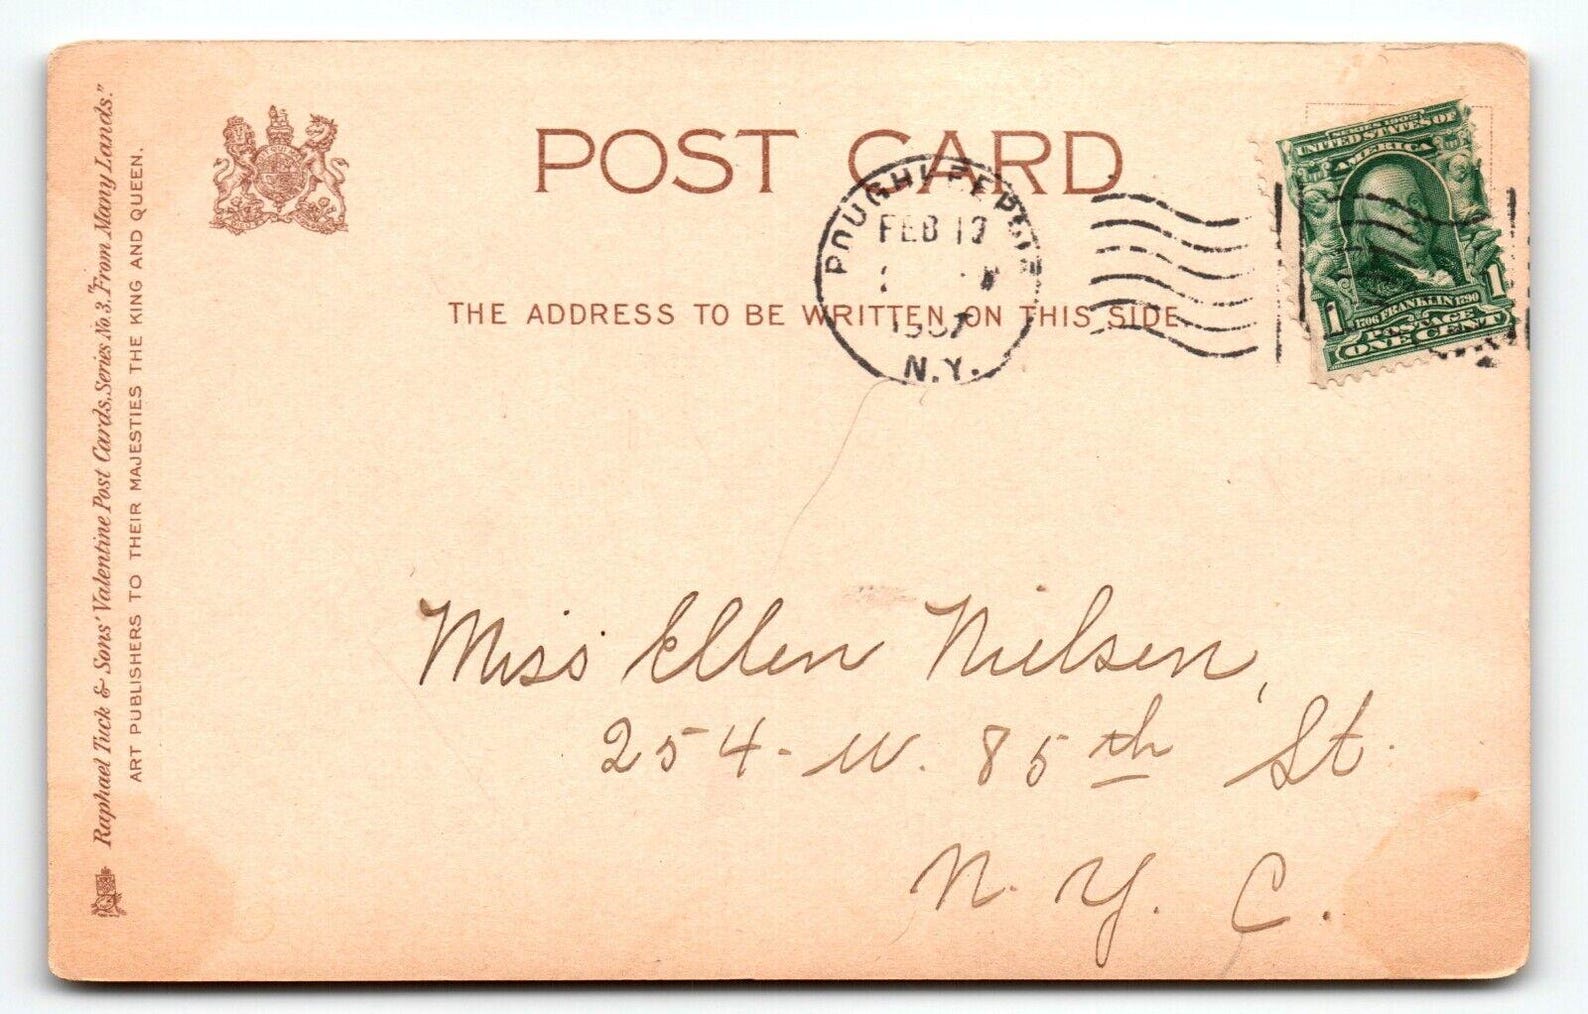 POST CARD
THE ADDRESS TO BE WRITTEN ON THIS SIDE.
Raphael Tuck & Sons' Valentine Post Cards, Series No. 3, "From Many Lands."
ART PUBLISHERS TO THEIR MAJESTIES THE KING AND QUEEN.
POUGHKEEPSIE
FEB
1907
N.Y.
SERIES 1902
UNITED STATES OF
AMERICA
1706 FRANKLIN 1790
1 1
POSTAGE
ONE CENT
Miss Ellen Nielsen,
254-W. 85th St.
N. Y. C.